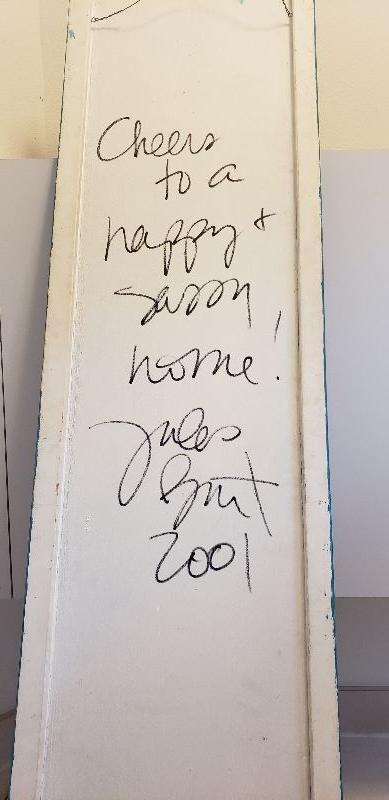 Cheers
to a
happy +
sassy
home!
Jules
2001